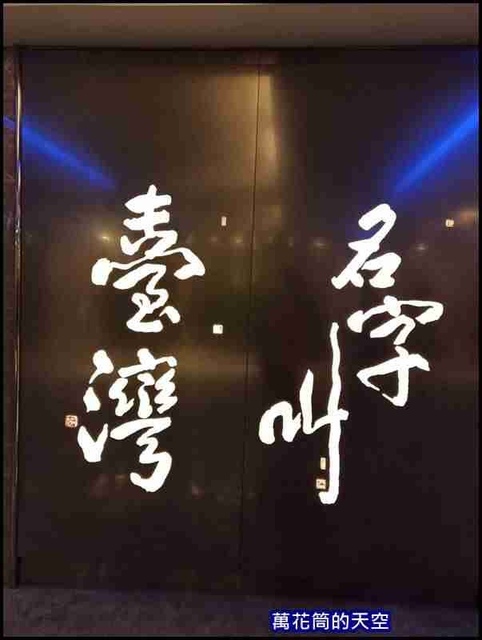 名字
叫
臺灣
萬花筒的天空